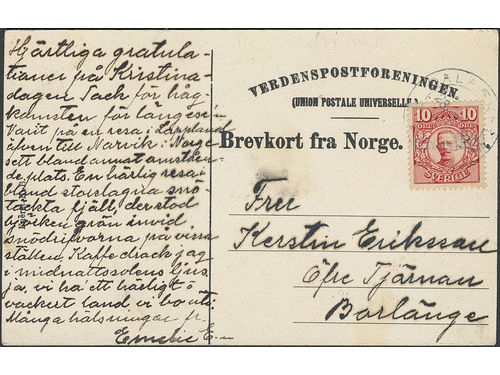 Hjärtliga gratula-
tioner på Kristina-
dagen. Tack för håg-
komsten för länge sen.
Varit på en resa i Lappland
äfven till Narvik i Norge
sett bland annat omstå-
de plats. En härlig resa i
bland storslagna snö-
täckta fjäll, der stod
björken grön invid
snödrifvorna på vissa
ställen. Kaffe drack jag
i midnattssolens ljus
ja, vi ha ett härligt o
vackert land vi bo uti.
Många hälsningar fr.
Emelie E-n
VERDENSPOSTFORENINGEN.
(UNION POSTALE UNIVERSELLE.)
Brevkort fra Norge.
10 10
SVERIGE
Fru
Kerstin Eriksson
Öfre Tjärnan
Borlänge